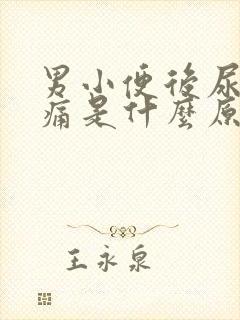 男小便后尿
痛是什麽原
王永泉